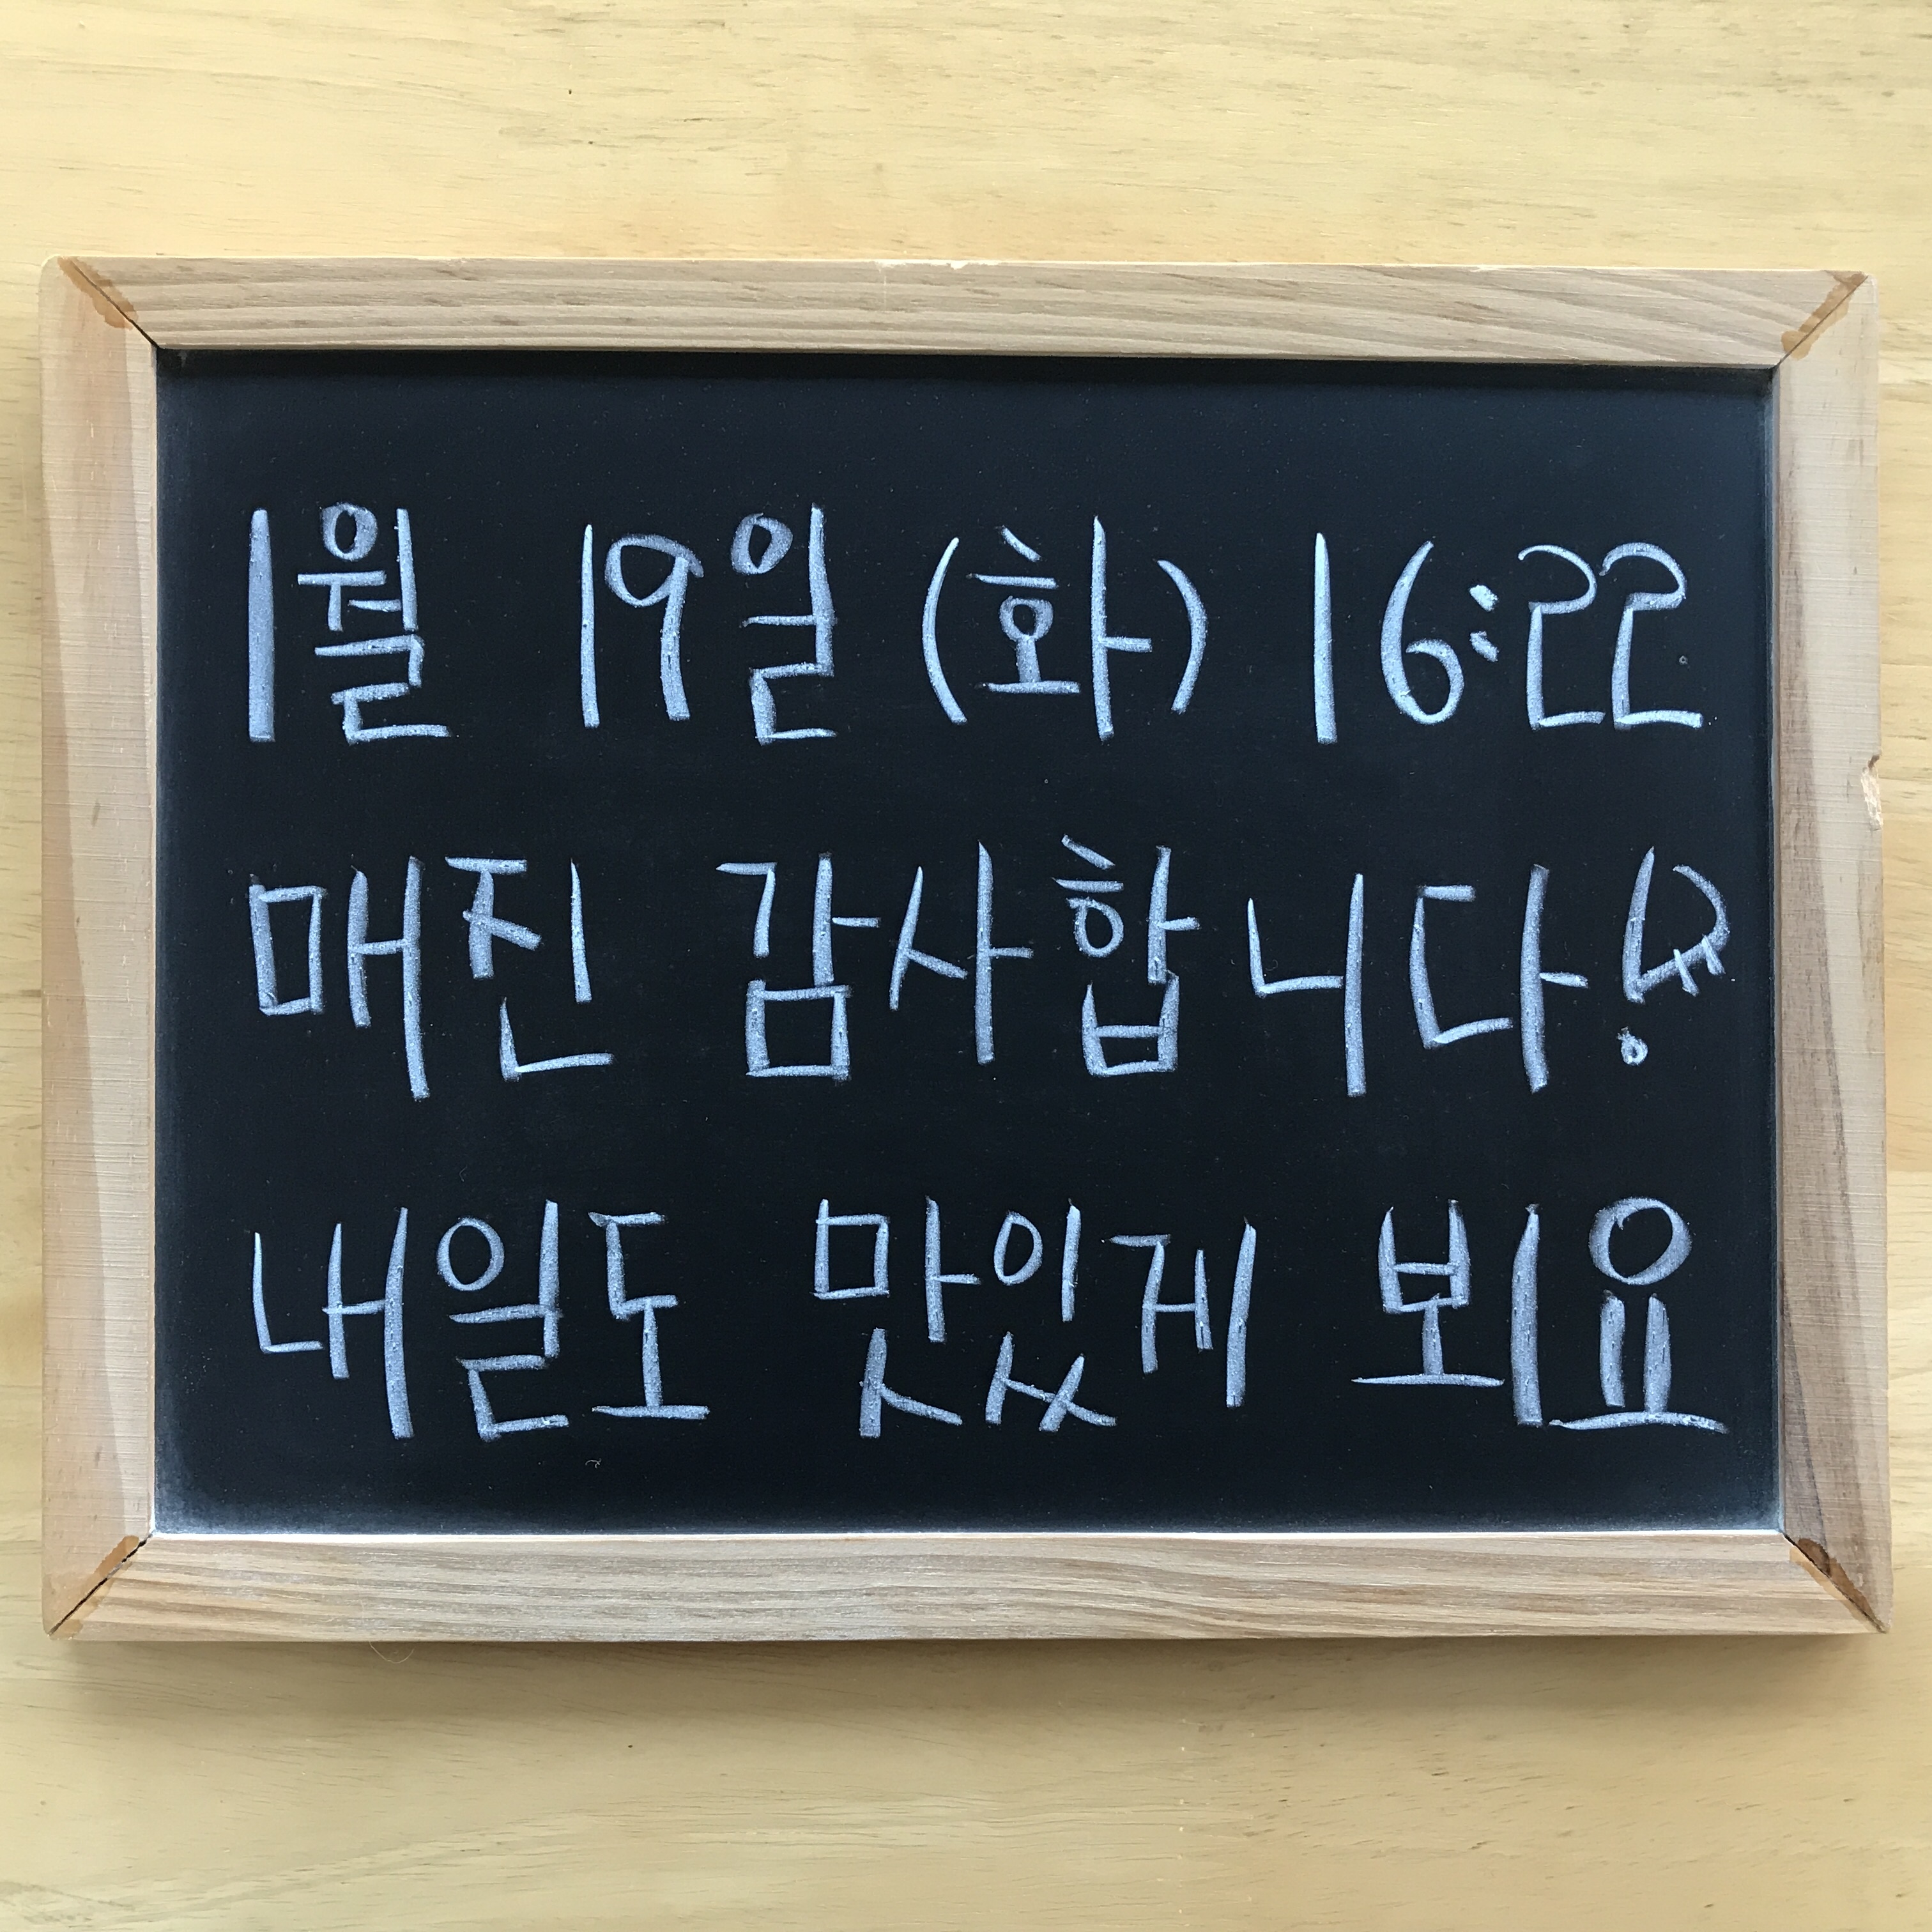 1월 19일 (화) 16:22
매진 감사합니다!
내일도 맛있게 뵈요